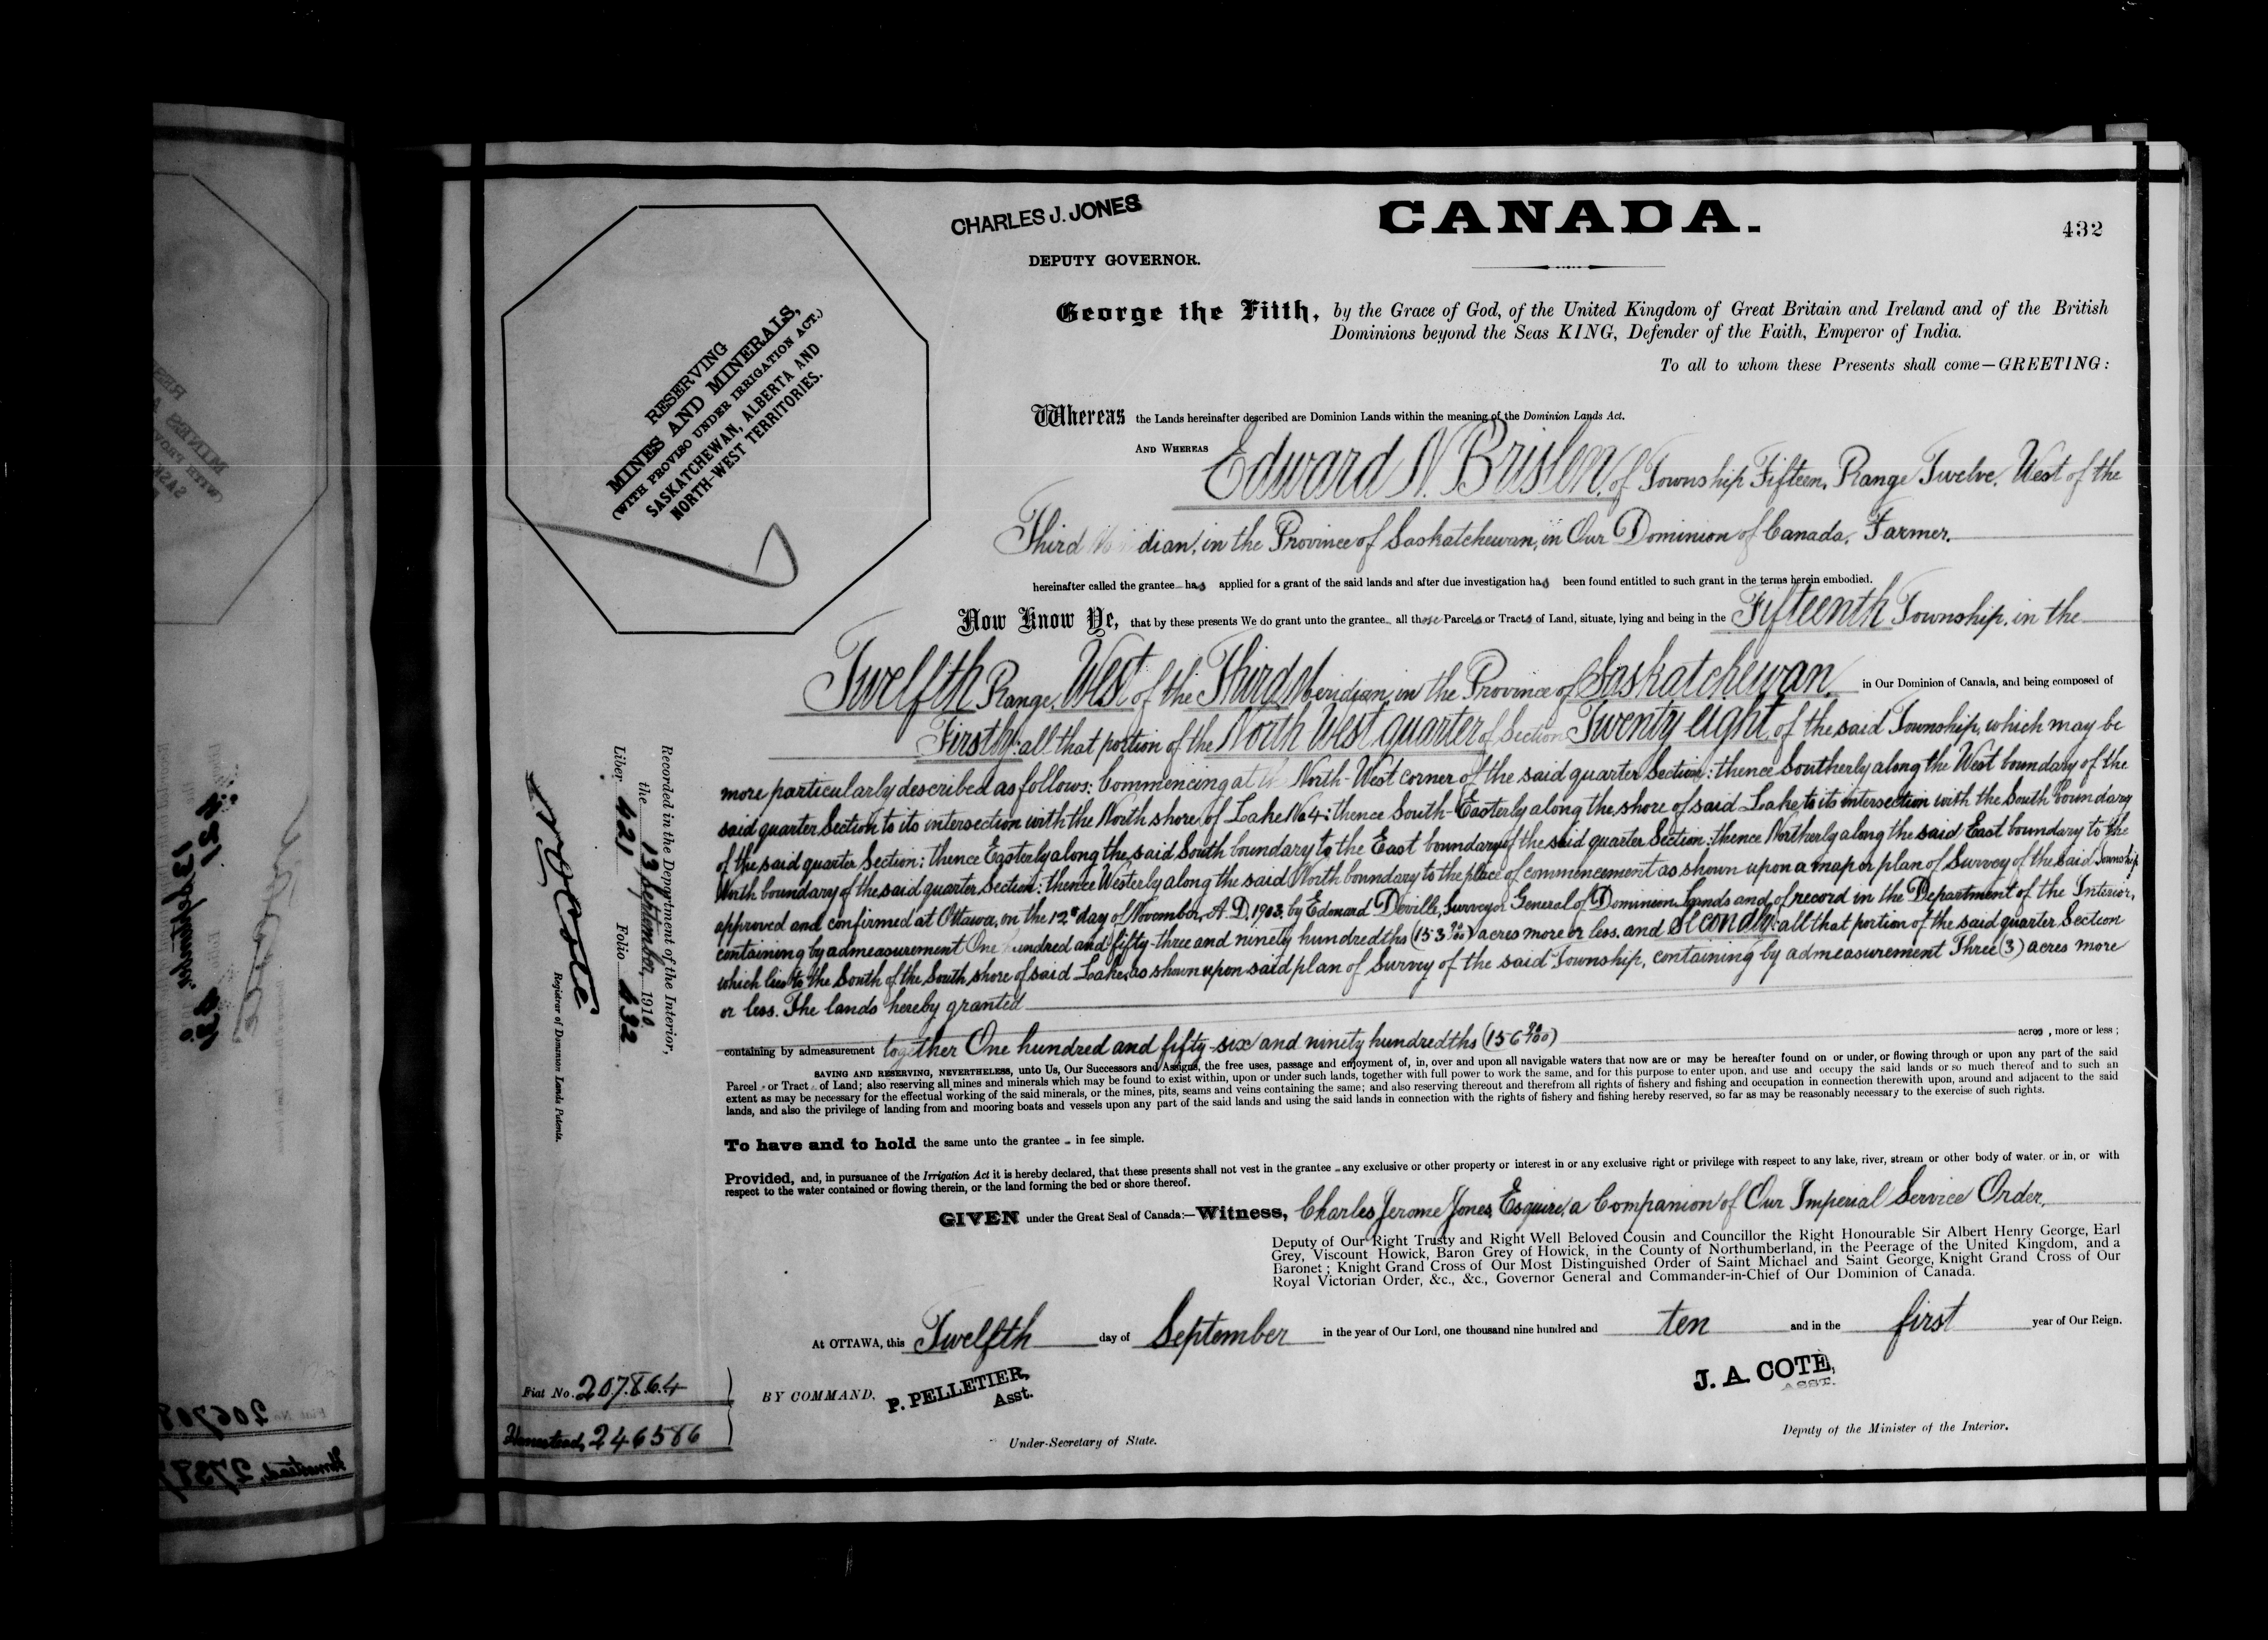 CHARLES J. JONES
DEPUTY GOVERNOR.
CANADA.
432
RESERVING
MINES AND MINERALS,
(WITH PROVISO UNDER IRRIGATION ACT.)
SASKATCHEWAN, ALBERTA AND
NORTH-WEST TERRITORIES.
George the Fifth, by the Grace of God, of the United Kingdom of Great Britain and Ireland and of the British
Dominions beyond the Seas KING, Defender of the Faith, Emperor of India.
To all to whom these Presents shall come—GREETING:
Whereas the Lands hereinafter described are Dominion Lands within the meaning of the Dominion Lands Act.
AND WHEREAS Edward N. Brislen, of Township Fifteen, Range Twelve, West of the
Third dian, in the Province of Saskatchewan, in Our Dominion of Canada, Farmer.
hereinafter called the grantee has applied for a grant of the said lands and after due investigation has been found entitled to such grant in the terms herein embodied.
Now Know Ye, that by these presents We do grant unto the grantee all those Parcels or Tracts of Land, situate, lying and being in the Fifteenth Township, in the
Twelfth Range, West of the Third Meridian, in the Province of Saskatchewan, in Our Dominion of Canada, and being composed of
Firstly: all that portion of the North West quarter of Section Twenty eight of the said Township, which may be
more particularly described as follows: Commencing at th North-West corner of the said quarter Section: thence Southerly along the West boundary of the
said quarter Section to its intersection with the North shore of Lake No 4: thence South-Easterly along the shore of said Lake, to its intersection with the South boundary
of the said quarter Section; thence Easterly along the said South boundary to the East boundary of the said quarter Section: thence Northerly along the said East boundary to the
North boundary of the said quarter Section: thence Westerly along the said North boundary to the place of commencement as shown upon a map or plan of Survey of the said Township
approved and confirmed at Ottawa, on the 12th day of November, A.D. 1903, by Edouard Deville, Surveyor General of Dominion Lands and of record in the Department of the Interior,
containing by admeasurement One hundred and fifty-three and ninety hundredths (153 90/100) acres more or less, and Secondly: all that portion of the said quarter Section
which lies to the South of the South shore of said Lake, as shown upon said plan of Survey of the said Township, containing by admeasurement Three (3) acres more
or less. The lands hereby granted
containing by admeasurement together One hundred and fifty-six and ninety hundredths (156 90/100) acres, more or less;
SAVING AND RESERVING, NEVERTHELESS, unto Us, Our Successors and Assigns, the free uses, passage and enjoyment of, in, over and upon all navigable waters that now are or may be hereafter found on or under, or flowing through or upon any part of the said
Parcel or Tract of Land; also reserving all mines and minerals which may be found to exist within, upon or under such lands, together with full power to work the same, and for this purpose to enter upon, and use and occupy the said lands or so much thereof and to such an
extent as may be necessary for the effectual working of the said minerals, or the mines, pits, seams and veins containing the same; and also reserving thereout and therefrom all rights of fishery and fishing and occupation in connection therewith upon, around and adjacent to the said
lands, and also the privilege of landing from and mooring boats and vessels upon any part of the said lands and using the said lands in connection with the rights of fishery and fishing hereby reserved, so far as may be reasonably necessary to the exercise of such rights.
To have and to hold the same unto the grantee in fee simple.
Provided, and, in pursuance of the Irrigation Act it is hereby declared, that these presents shall not vest in the grantee any exclusive or other property or interest in or any exclusive right or privilege with respect to any lake, river, stream or other body of water, or in, or with
respect to the water contained or flowing therein, or the land forming the bed or shore thereof.
GIVEN under the Great Seal of Canada:—Witness, Charles Jerome Jones, Esquire, a Companion of Our Imperial Service Order,
Deputy of Our Right Trusty and Right Well Beloved Cousin and Councillor the Right Honourable Sir Albert Henry George, Earl
Grey, Viscount Howick, Baron Grey of Howick, in the County of Northumberland, in the Peerage of the United Kingdom, and a
Baronet; Knight Grand Cross of Our Most Distinguished Order of Saint Michael and Saint George, Knight Grand Cross of Our
Royal Victorian Order, &c., &c., Governor General and Commander-in-Chief of Our Dominion of Canada.
At OTTAWA, this Twelfth day of September in the year of Our Lord, one thousand nine hundred and ten and in the first year of Our Reign.
BY COMMAND,
P. PELLETIER,
Asst.
Under-Secretary of State.
J. A. COTE,
ASST.
Deputy of the Minister of the Interior.
Recorded in the Department of the Interior,
the 13 September, 1910
Liber 421 Folio 432
N O Coté
Registrar of Dominion Lands Patents.
Fiat No. 207864
Homestead, 246586